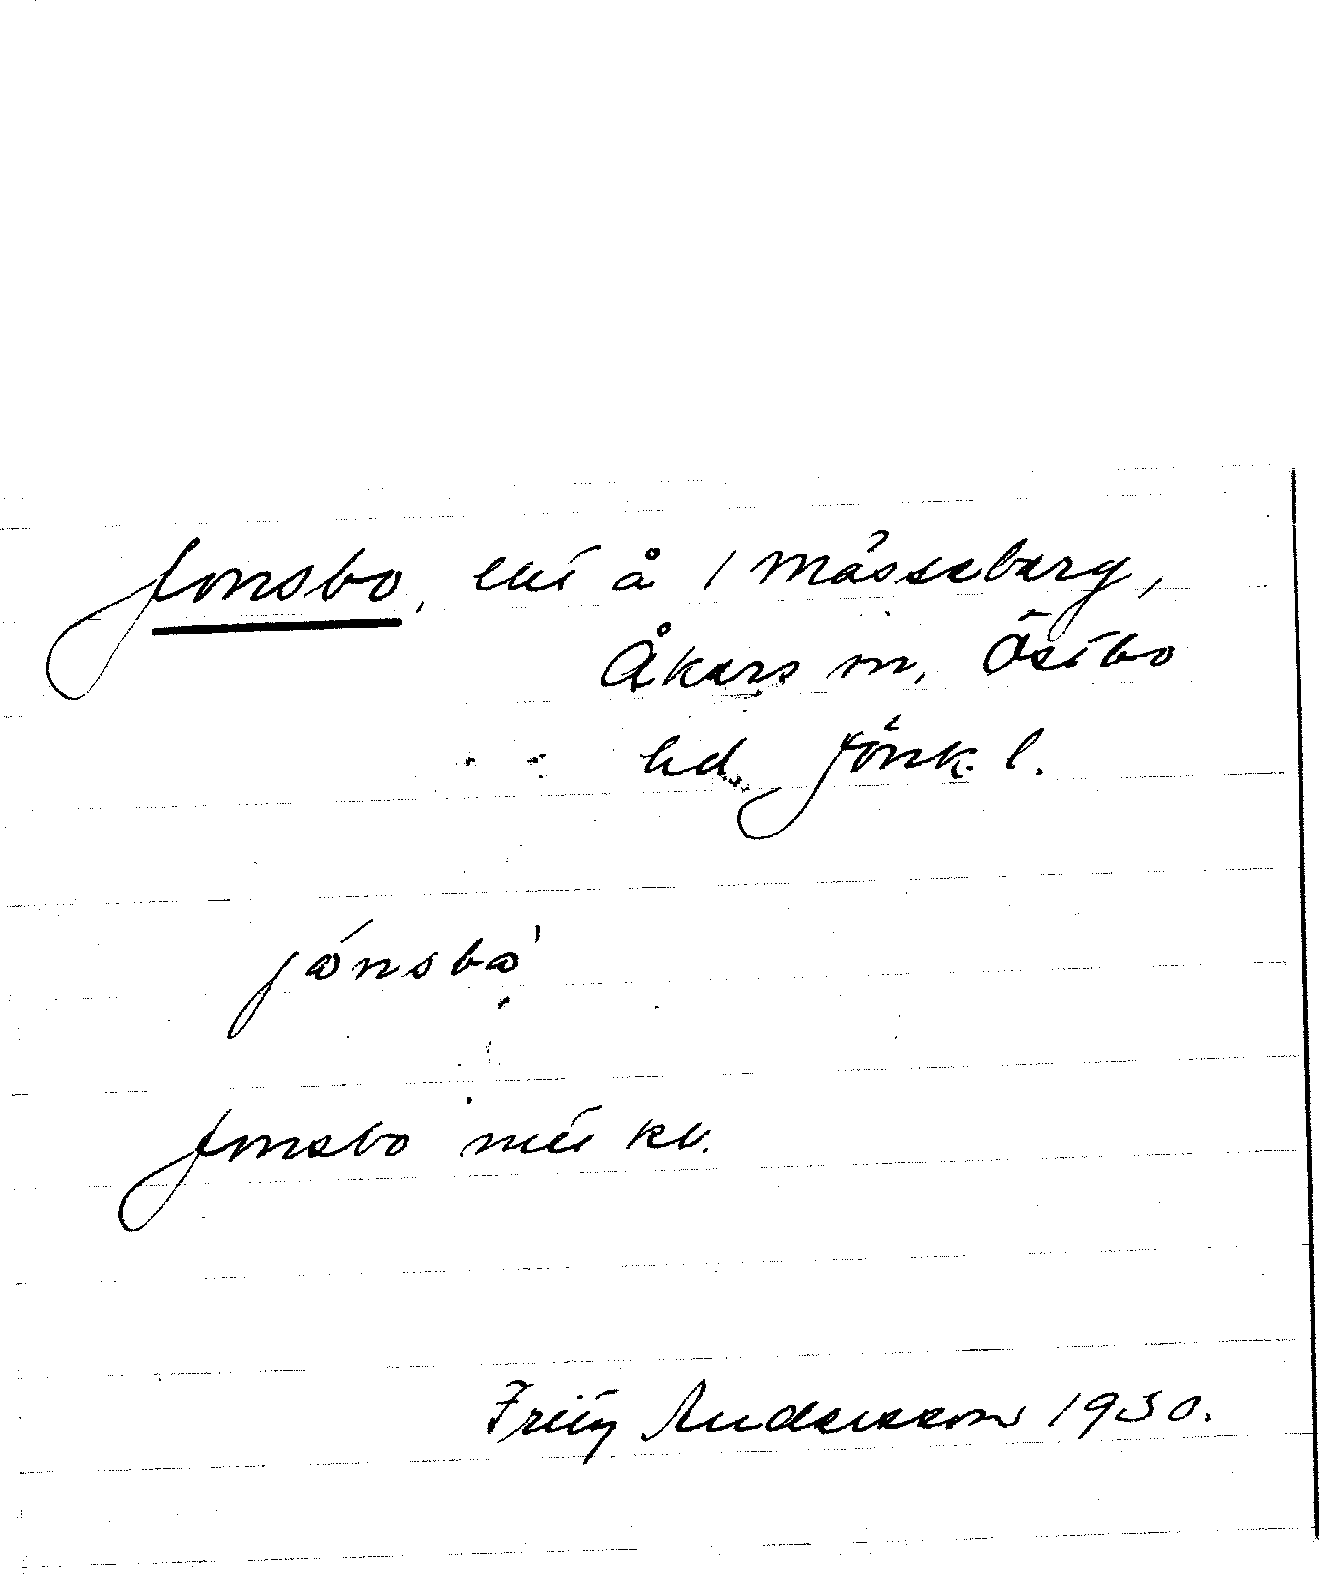 Jonsbo, lht å i Mässeberg,
Åkers sn, Östbo
hd, Jönk. l.
Jonsbo mtl kb.
Fritz Andersson 1930.